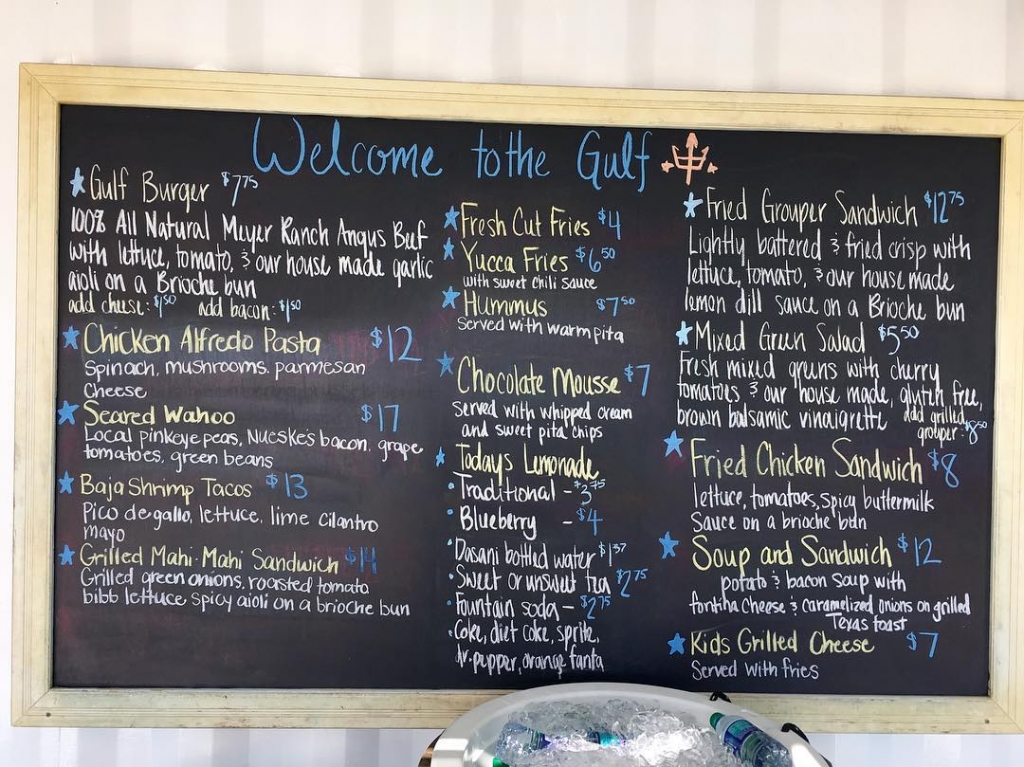 Welcome to the Gulf
Gulf Burger $7.75
100% All Natural Meyer Ranch Angus Beef
with lettuce, tomato, & our house made garlic
aioli on a Brioche bun
add cheese: $1.50 add bacon: $1.50
Chicken Alfredo Pasta $12
Spinach, mushrooms, parmesan
Cheese
Seared Wahoo $17
Local pinkeye peas, Nueskes bacon, grape
tomatoes, green beans
Baja Shrimp Tacos $13
Pico de gallo, lettuce, lime cilantro
mayo
Grilled Mahi-Mahi Sandwich $14
Grilled green onions, roasted tomato
bibb lettuce spicy aioli on a brioche bun
Fresh Cut Fries $4
Yucca Fries $6.50
with sweet chili sauce
Hummus $7.50
Served with warm pita
Chocolate Mousse $7
served with whipped cream
and sweet pita chips
Todays Lemonade
Traditional - $3.75
Blueberry - $4
Dasani bottled water $1.37
Sweet or unsweet tea $2.75
Fountain soda - $2.75
Coke, diet coke, sprite,
dr. pepper, orange fanta
Fried Grouper Sandwich $12.75
Lightly battered & fried crisp with
lettuce, tomato, & our house made
lemon dill sauce on a Brioche bun
Mixed Green Salad $5.50
Fresh mixed greens with cherry
tomatoes & our house made, gluten free,
brown balsamic vinaigrette add grilled
grouper: $8.50
Fried Chicken Sandwich $8
lettuce, tomatoes, spicy buttermilk
Sauce on a brioche bun
Soup and Sandwich $12
potato & bacon soup with
fontina cheese & caramelized onions on grilled
Texas toast
Kids Grilled Cheese $7
Served with fries